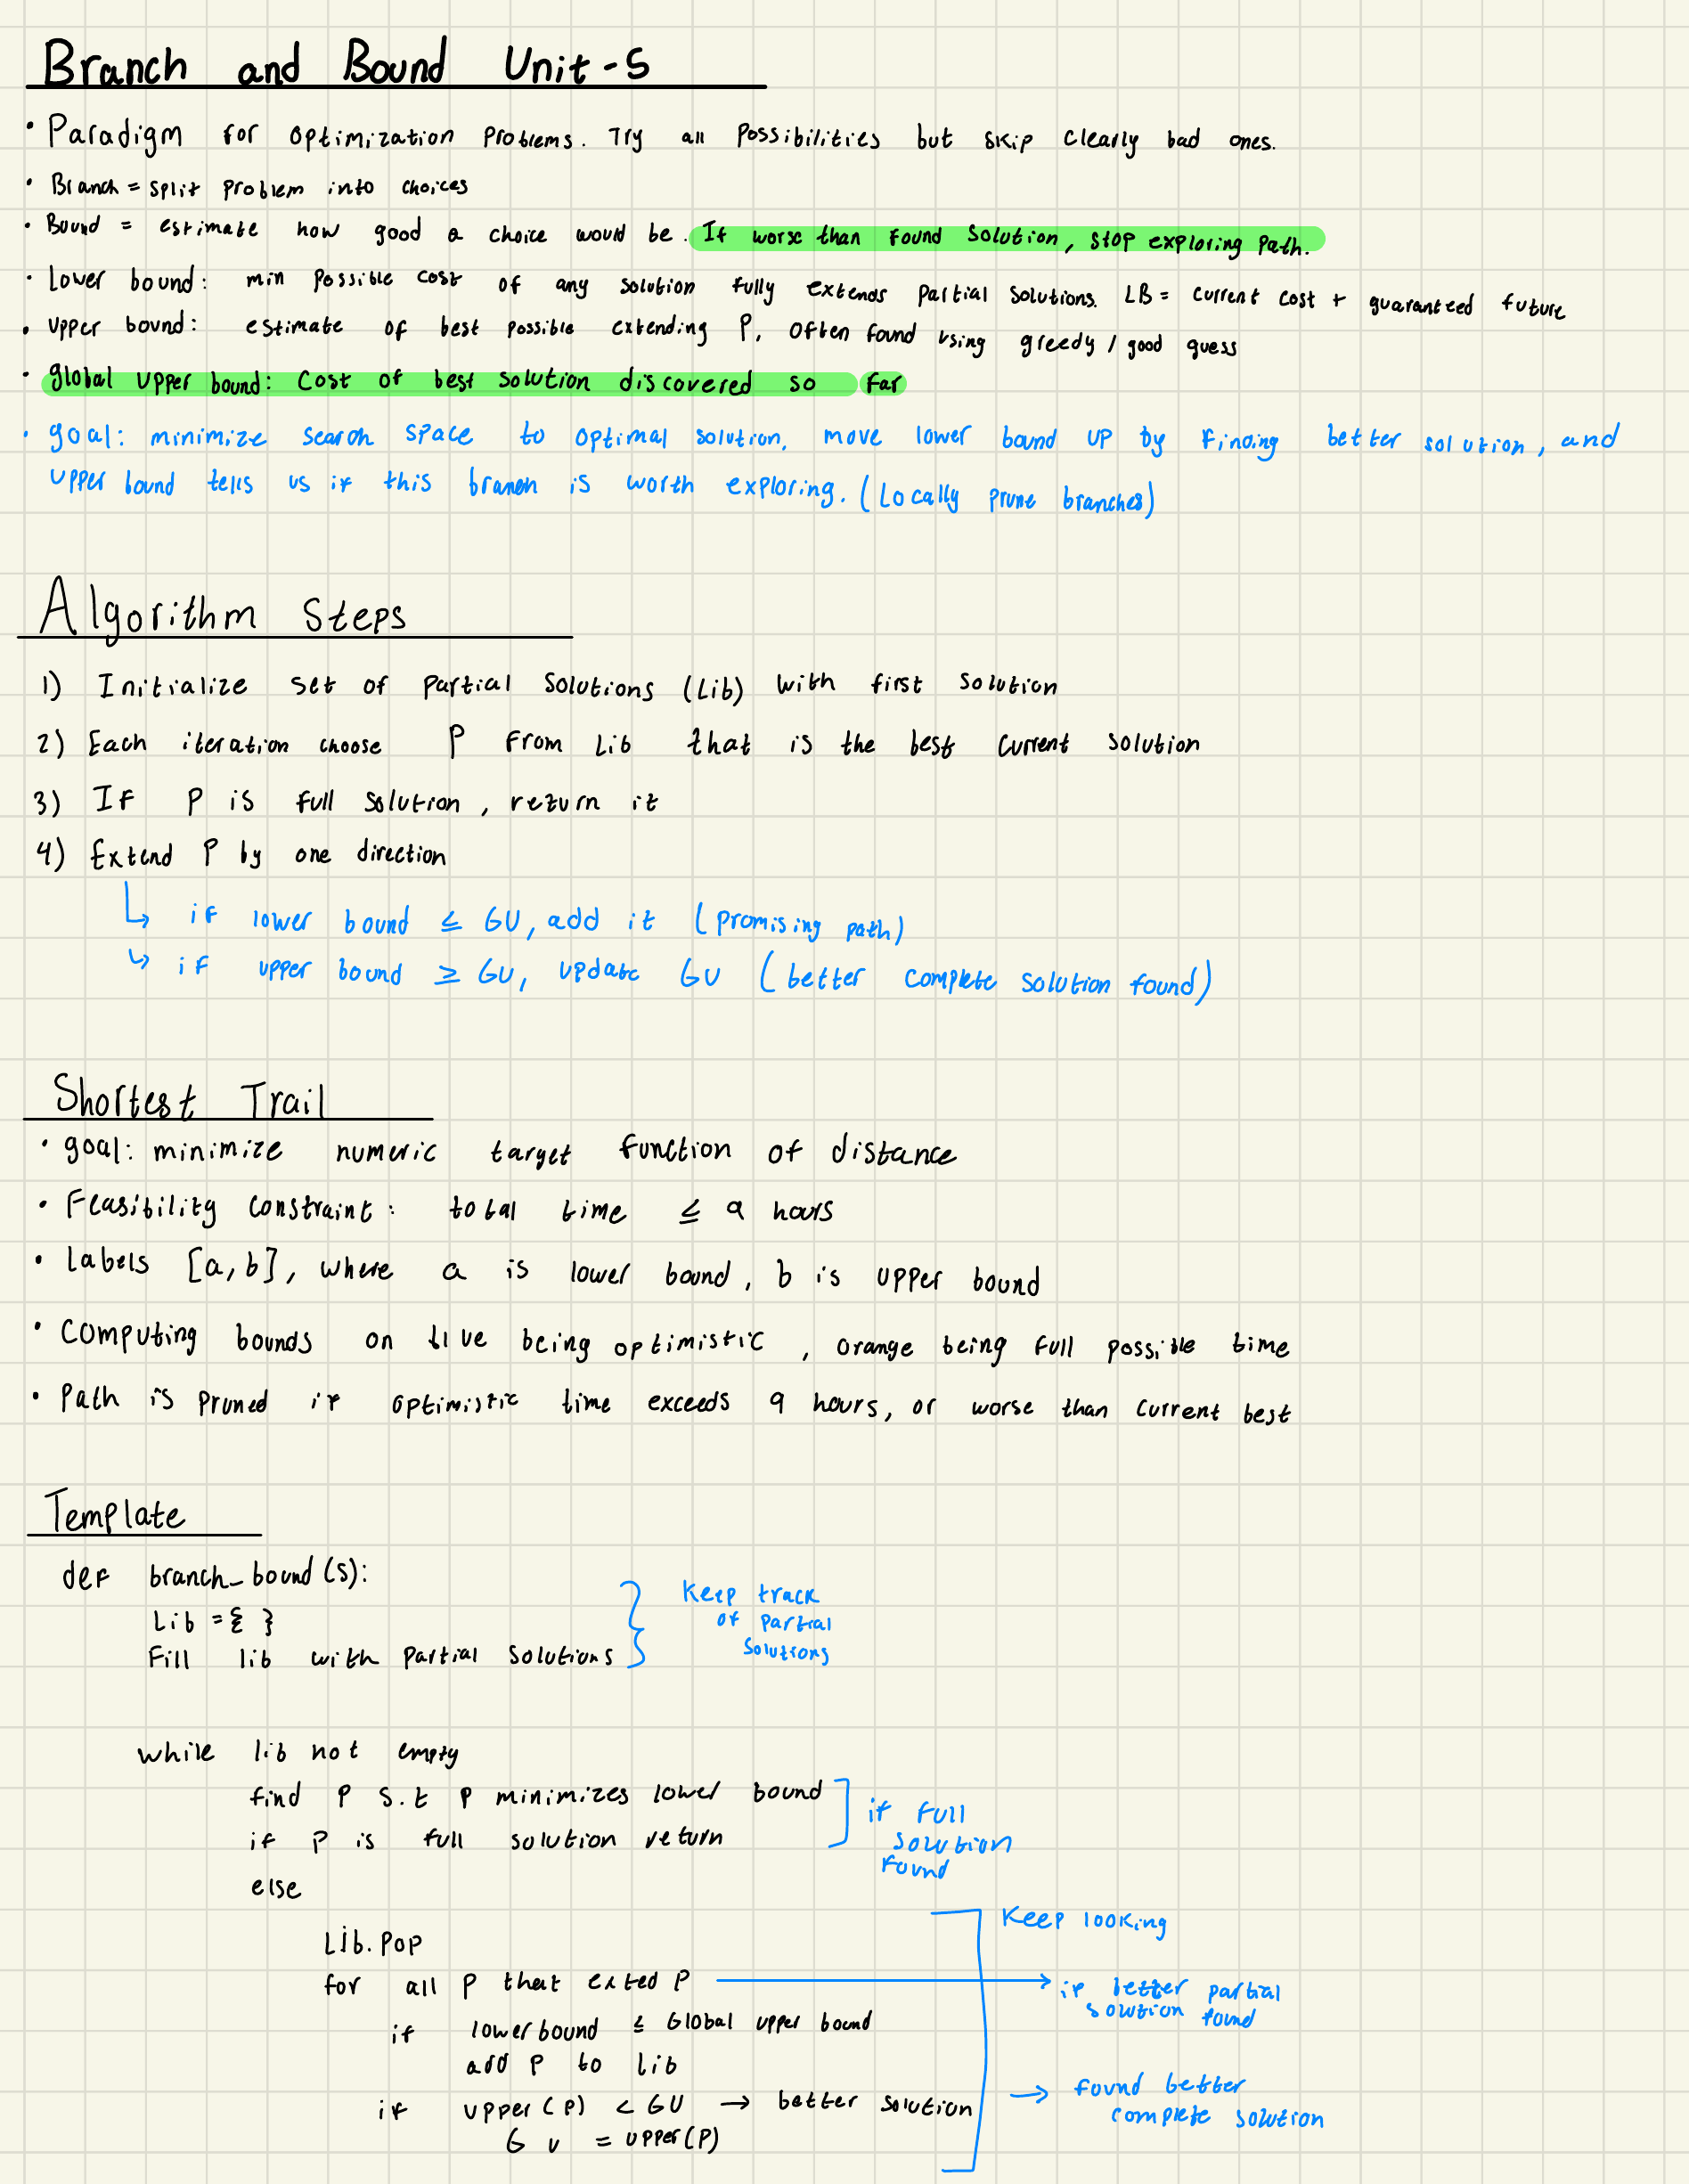 Branch and Bound Unit-5
• Paradigm for optimization problems. Try all possibilities but skip clearly bad ones.
• Branch = split problem into choices
• Bound = estimate how good a choice would be. If worse than found solution, stop exploring path.
• Lower bound: min possible cost of any solution fully extends partial solutions. LB = current cost + guaranteed future
• upper bound: estimate of best possible extending P, often found using greedy / good guess
• global upper bound: cost of best solution discovered so far
• goal: minimize search space to optimal solution, move lower bound up by finding better solution, and
upper bound tells us if this branch is worth exploring. (Locally prune branches)
Algorithm Steps
1) Initialize set of partial solutions (Lib) with first solution
2) Each iteration choose P from Lib that is the best current solution
3) If P is full solution, return it
4) Extend P by one direction
↳ if lower bound ≤ GU, add it (promising path)
↳ if upper bound ≥ GU, update GU (better complete solution found)
Shortest Trail
• goal: minimize numeric target function of distance
• Feasibility constraint: total time ≤ 9 hours
• Labels [a, b], where a is lower bound, b is upper bound
• Computing bounds on blue being optimistic, orange being full possible time
• Path is pruned if optimistic time exceeds 9 hours, or worse than current best
Template
def branch_bound(S):
Lib = { }
Fill lib with partial solutions
Keep track
of partial
solutions
while lib not empty
find P s.t P minimizes lower bound
if P is full solution return
if full
solution
found
else
Lib.pop
Keep looking
for all P that exted P → if better partial
solution found
if lowerbound ≤ Global upper bound
add P to lib
if upper(P) < GU → better solution
GU = upper(P)
→ found better
complete solution